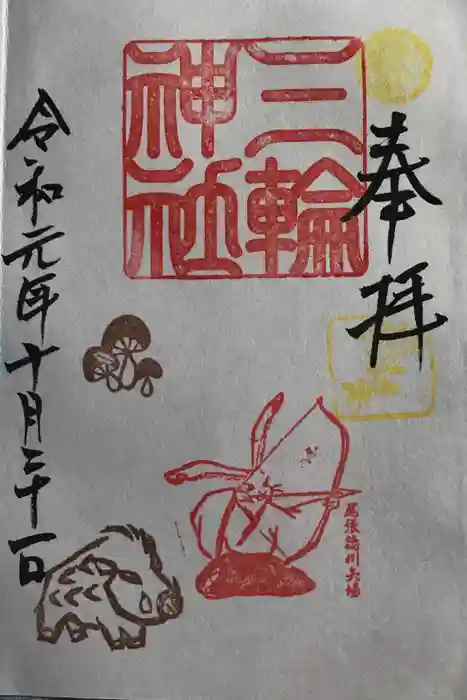 奉拝
三輪
神社
尾張徳川矢場
令和元年十月三十一日